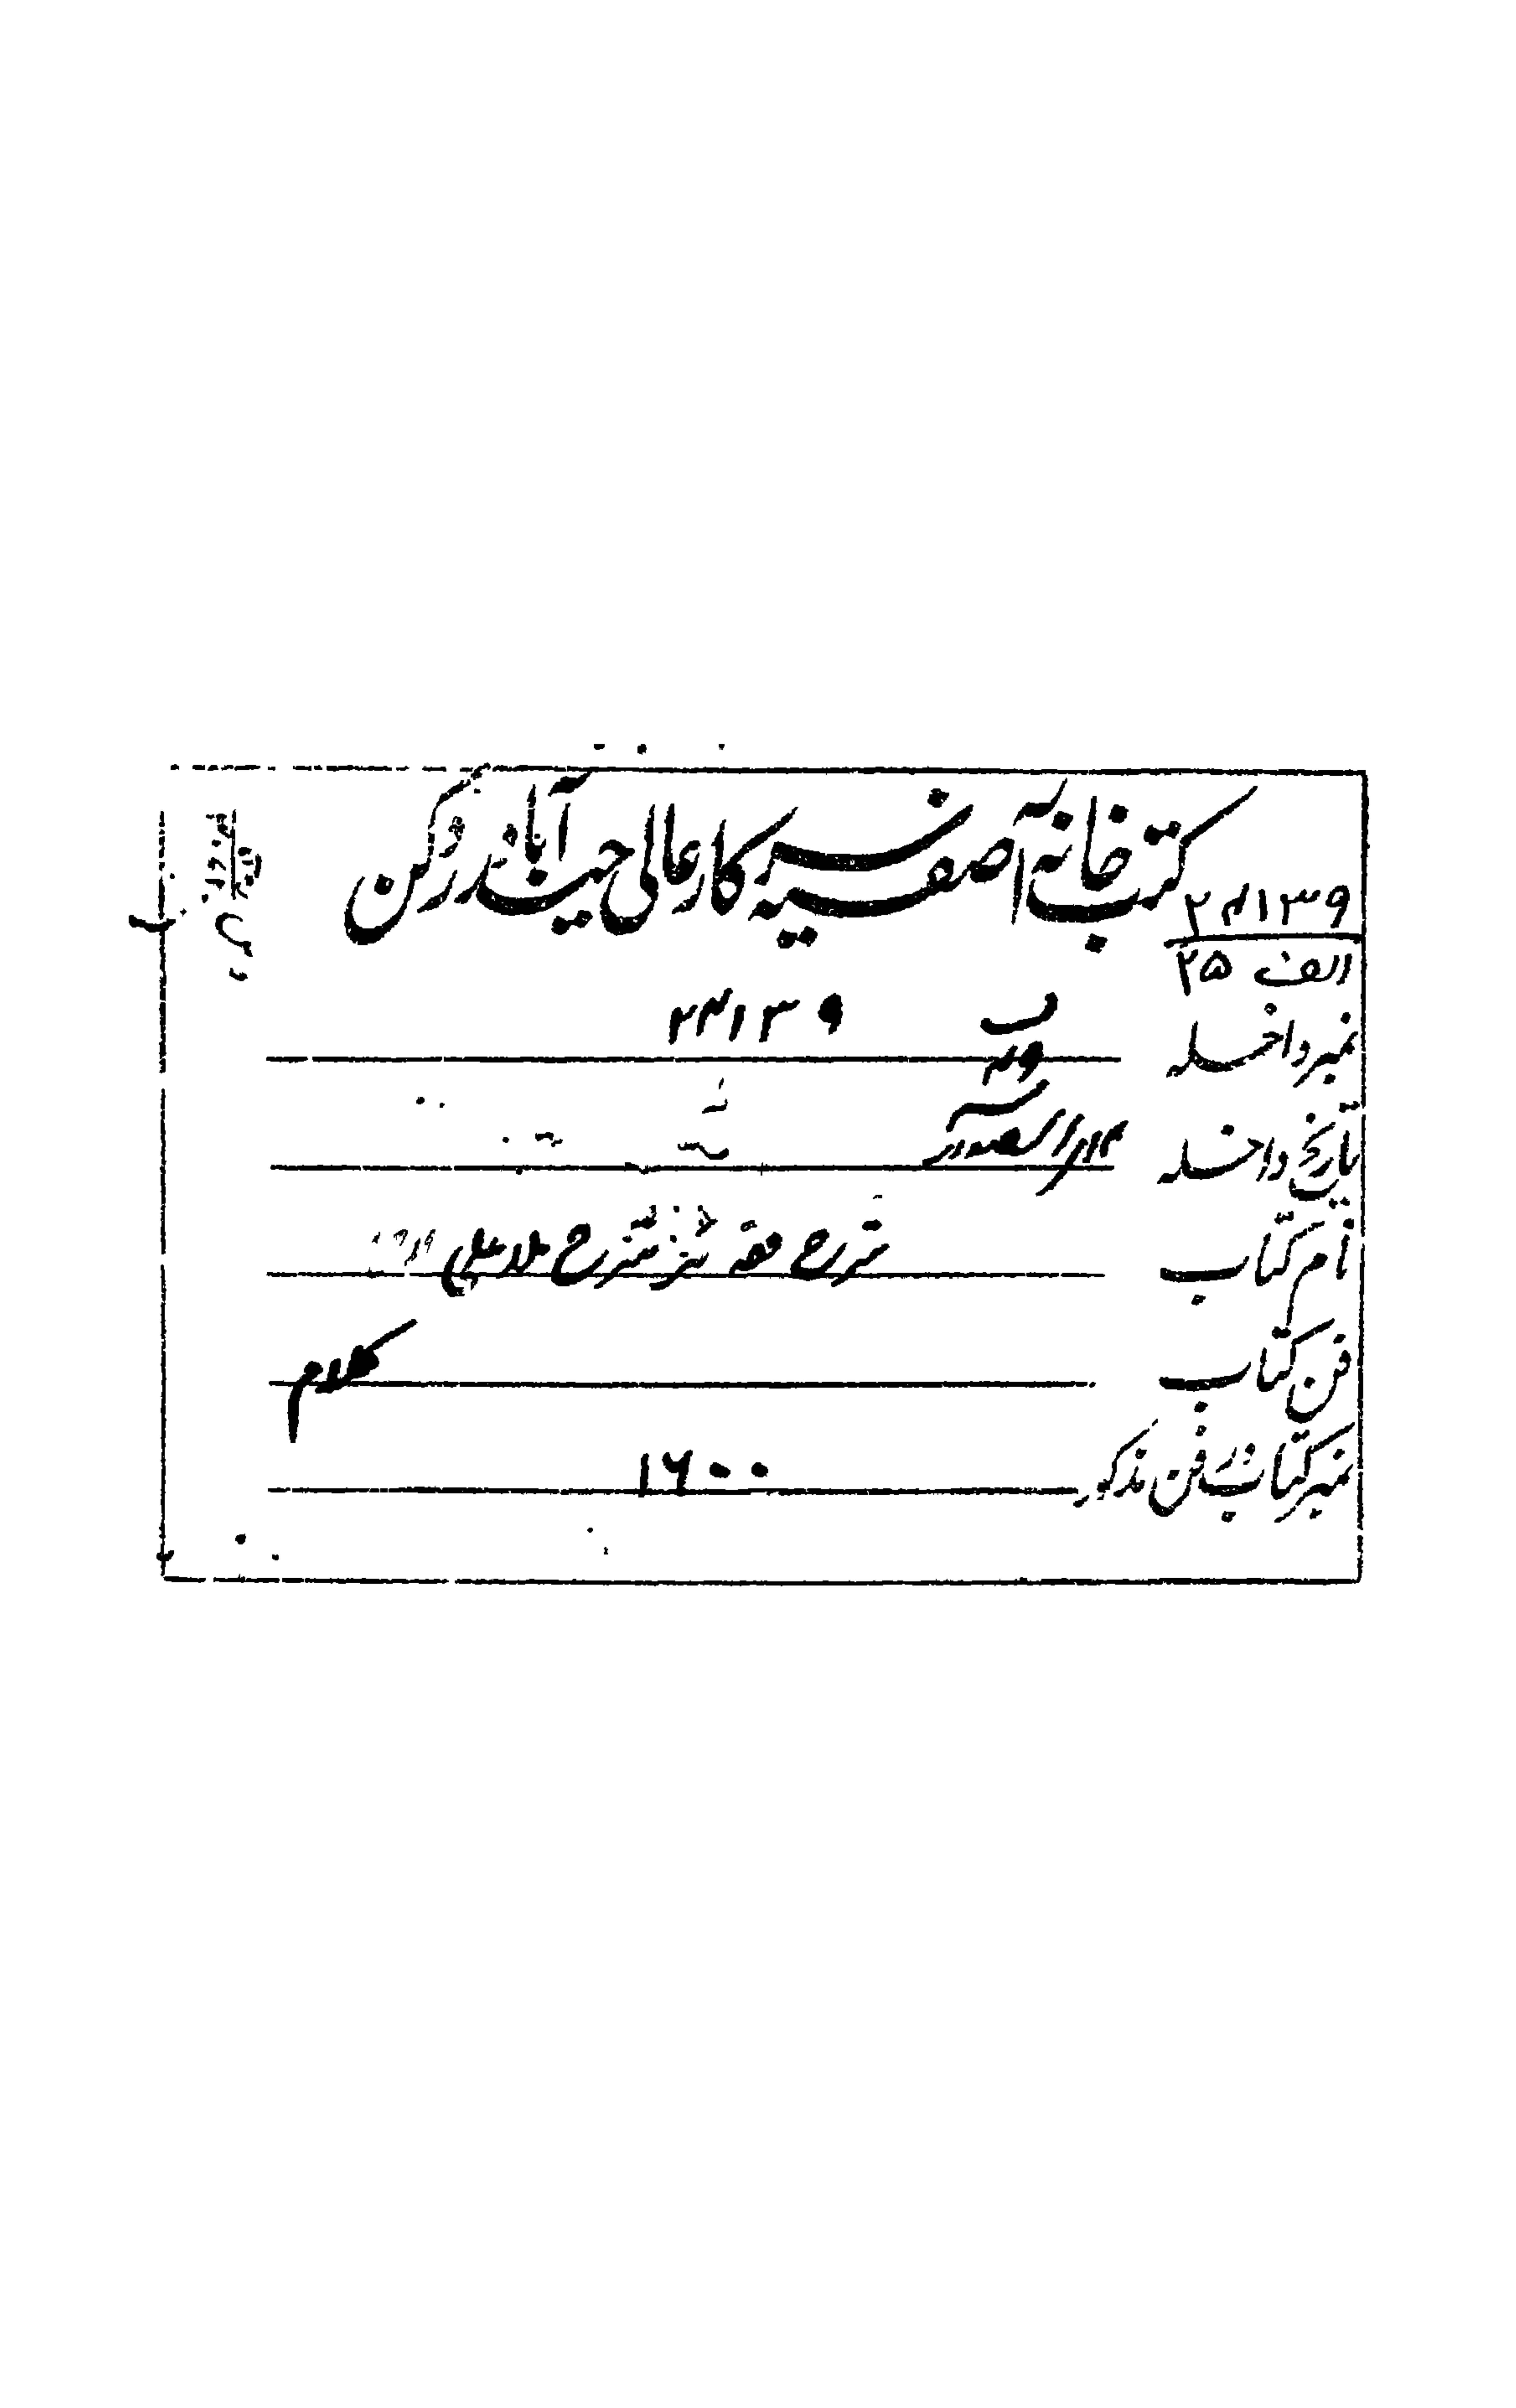 کتب خانہ آصفیہ سرکار عالی حیدرآباد دکن
۲۴۱۳۹
الف ۲۵
نمبر داخلہ ۲۴۱۳۹
تاریخ داخلہ
نام کتاب شرح فقہ اکبر شرح ملا علی
فن کتاب کلام
نمبر کتاب فن مذکور ۱۶۰۰